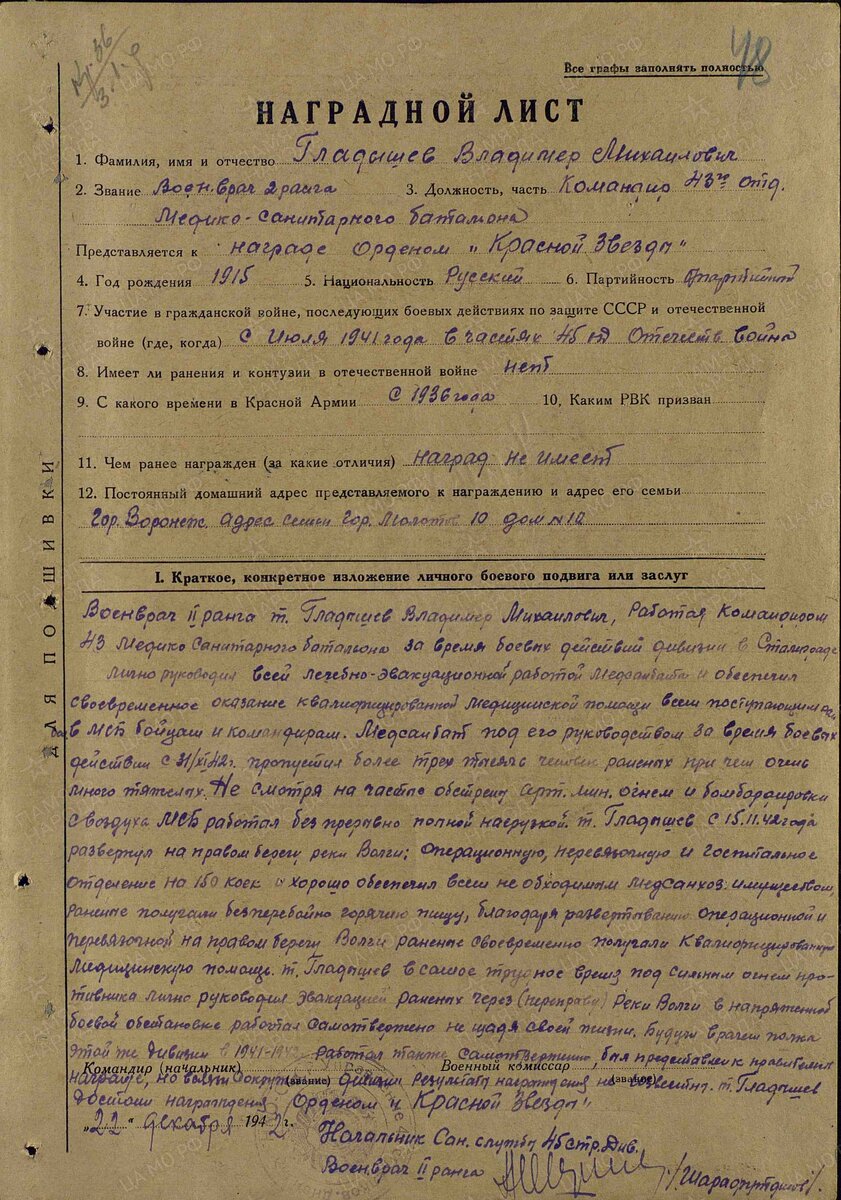 48
Все графы заполнять полностью
НАГРАДНОЙ ЛИСТ
1. Фамилия, имя и отчество Гладышев Владимер Михаилович
2. Звание Воен.врач 2 ранга 3. Должность, часть Командир 43го отд.
Медико-санитарного баталиона
Представляется к награде Орденом „Красной Звезды"
4. Год рождения 1915 5. Национальность Русский 6. Партийность
7. Участие в гражданской войне, последующих боевых действиях по защите СССР и отечественной
войне (где, когда) С Июля 1941 года в частях 45 сд Отечеств война
8. Имеет ли ранения и контузии в отечественной войне нет
9. С какого времени в Красной Армии с 1936 года 10. Каким РВК призван
11. Чем ранее награжден (за какие отличия) наград не имеет
12. Постоянный домашний адрес представляемого к награждению и адрес его семьи
Гор. Воронеж. Адрес семьи Гор. Молотов 10 дом №12
ДЛЯ ПОДШИВКИ
I. Краткое, конкретное изложение личного боевого подвига или заслуг
Военврач II ранга т. Гладышев Владимер Михаилович, Работая Командиром
43 Медико Санитарного баталиона за время боевых действий дивизии в Сталинграде
лично руководил всей лечебно-эвакуационной работой Медсанбата и обеспечил
своевременное оказание квалифицированной медицинской помощи всем поступающим
в МСБ бойцам и командирам. Медсанбат под его руководством за время боевых
действии с 31/XI42г. пропустил более трех тысячь человек раненых при чем очень
много тяжелых. Не смотря на частые обстрелы арт. мин. огнем и бомбардировки
с воздуха МСБ работал без прерывно полной нагрузкой. т. Гладышев с 15.11.42 года
развернул на правом берегу реки Волги: Операционную, перевязочную и Госпитальное
отделение на 150 коек и хорошо обеспечил всем не обходимым медсанхоз. имуществом,
раненые получали бесперебойно горячию пищу, благодаря развертыванию операционной и
перевязочной на правом берегу Волги раненые своевременно получали Квалифицированную
Медицинскую помощь. т. Гладышев в самое трудное время под сильным огнем про-
тивника лично руководил эвакуацией раненых через (переправу) Реки Волги в напряженной
боевой обстановке работал самотвержено не щадя своей жизни. Будучи врачем полка
этой же дивизии в 1941-1942 работал также самотвержено, был представлен к правителств
награде, но дивизии Результат награждения не известны. т. Гладышев
Командир (начальник) Военный комиссар
(звание) (звание)
достоин награждения Орденом „Красной Звезды"
„22" декабря 1942г.
Начальник Сан. службы 45 стр. Див.
Воен.врач II ранга